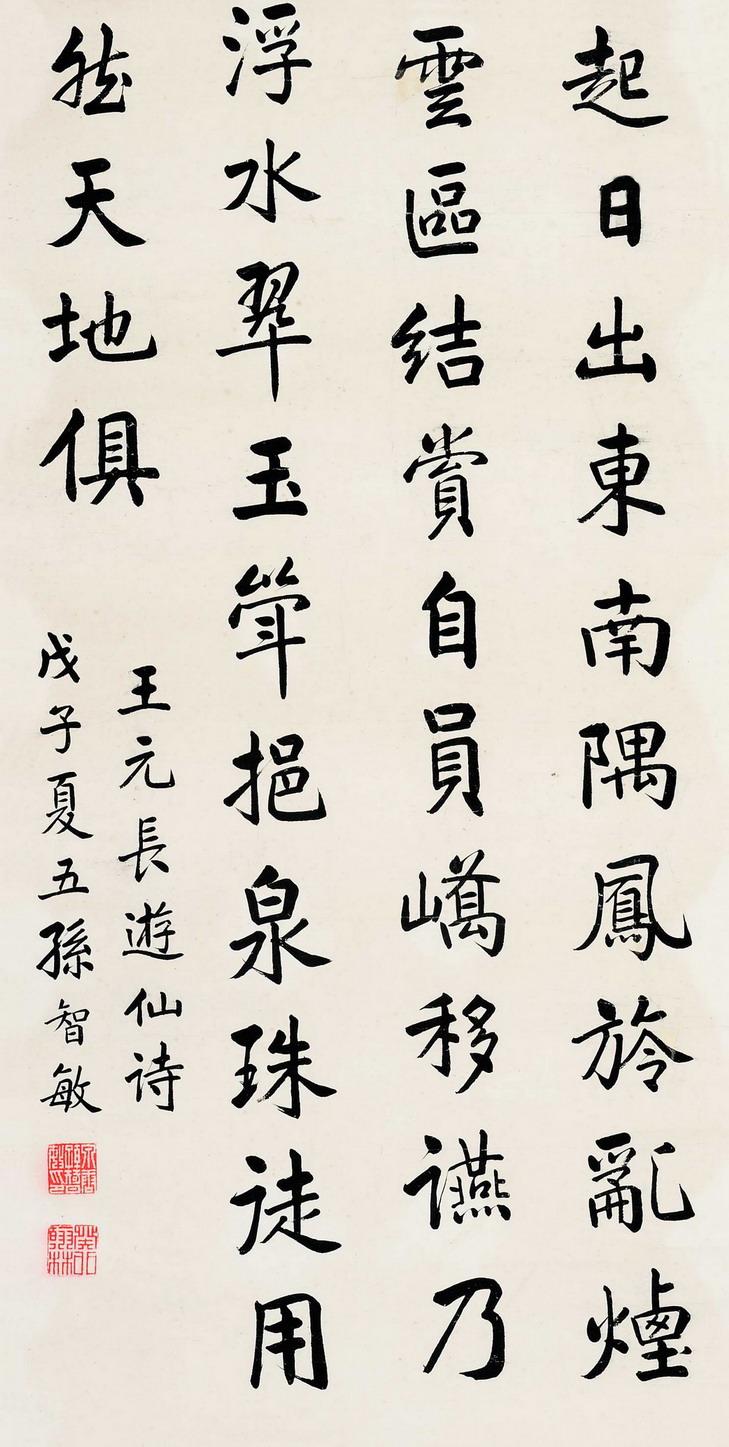 起日出東南隅鳳旍亂煙
雲區結賞自員嶠移讌乃
浮水翠玉斝挹泉珠徒用
然天地俱
王元長遊仙詩
戊子夏五孫智敏
癸卯翰林